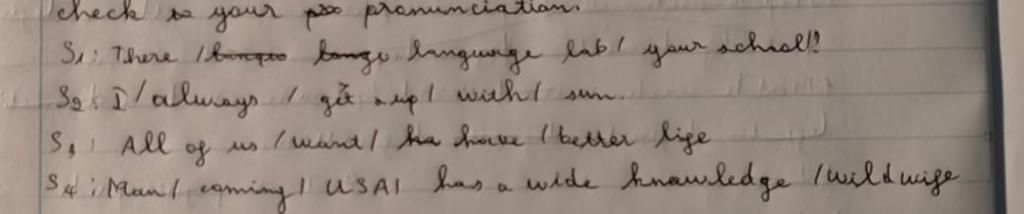 check your pronunciation.
S1: There / language lab / your school?
S2: I / always / get up / with / sun.
S3: All of us / want / have / better lige
S4: Man / coming / USA / has a wide knowledge / wild wige